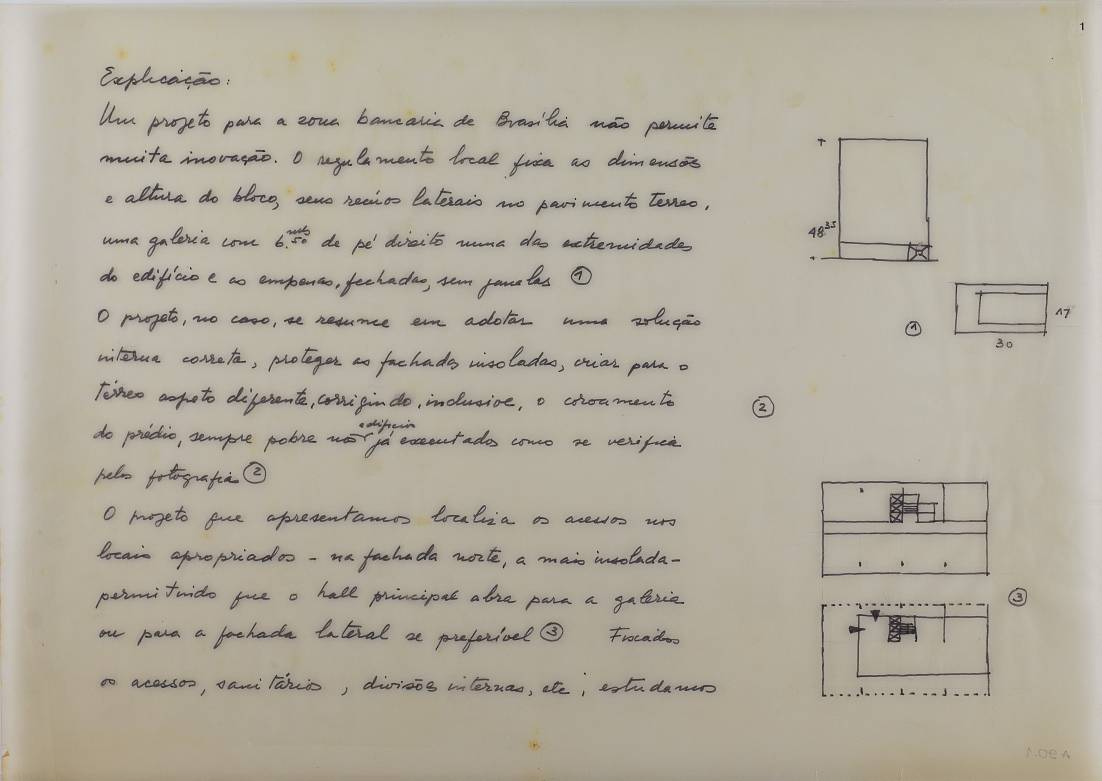 1
Explicação:
Um projeto para a zona bancaria de Brasília não permite
muita inovação. O regulamento local fixa as dimensões
e altura do bloco, seus recúos laterais no pavimento terreo,
uma galeria com 6.50 mts de pé direito numa das extremidades
do edifício e as empenas, fechadas, sem janelas ①
O projeto, no caso, se resume em adotar uma solução
interna correta, proteger as fachadas insoladas, criar para o
térreo aspeto diferente, corrigindo, inclusive, o coroamento
do prédio, sempre pobre nos edificios já executados como se verifica
pelas fotografias ②
O projeto que apresentamos localiza os acessos nos
locais apropriados – na fachada norte, a mais insolada –
permitindo que o hall principal abra para a galeria
ou para a fachada lateral se preferível ③ Fixados
os acessos, sanitários, divisões internas, etc, estudamos
48 35
17
30
①
②
③